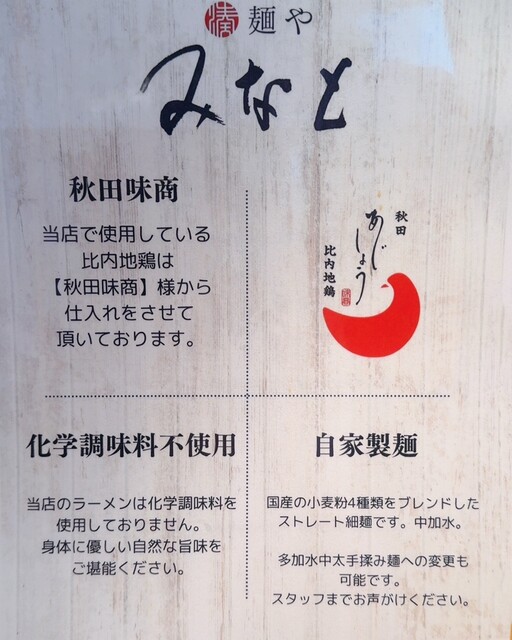 麺や
みなと
秋田味商
当店で使用している
比内地鶏は
【秋田味商】様から
仕入れをさせて
頂いております。
秋田
あじしょう
比内地鶏
化学調味料不使用
当店のラーメンは化学調味料を
使用しておりません。
身体に優しい自然な旨味を
ご堪能ください。
自家製麺
国産の小麦粉4種類をブレンドした
ストレート細麺です。中加水。
多加水中太手揉み麺への変更も
可能です。
スタッフまでお声がけください。